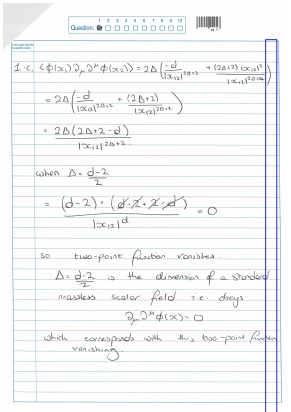 1 2 3 4 5 6 7 8 9 10
Question:
1 c. ⟨ϕ(x₁)∂_μ∂^μϕ(x₂)⟩ = 2Δ(-d/|x₁₂|^{2Δ+2} + (2Δ+2)|x₁₂|²/|x₁₂|^{2Δ+4})
= 2Δ(-d/|x₁₂|^{2Δ+2} + (2Δ+2)/|x₁₂|^{2Δ+2})
= 2Δ(2Δ+2-d)/|x₁₂|^{2Δ+2}.
when Δ = d-2/2
= (d-2)·(d-2+2-d)/|x₁₂|^d = 0
so two-point function vanishes.
Δ = d-2/2 is the dimension of a standard
massless scalar field i.e. obeys
∂_μ∂^μϕ(x) = 0
which corresponds with this two-point function
vanishing.